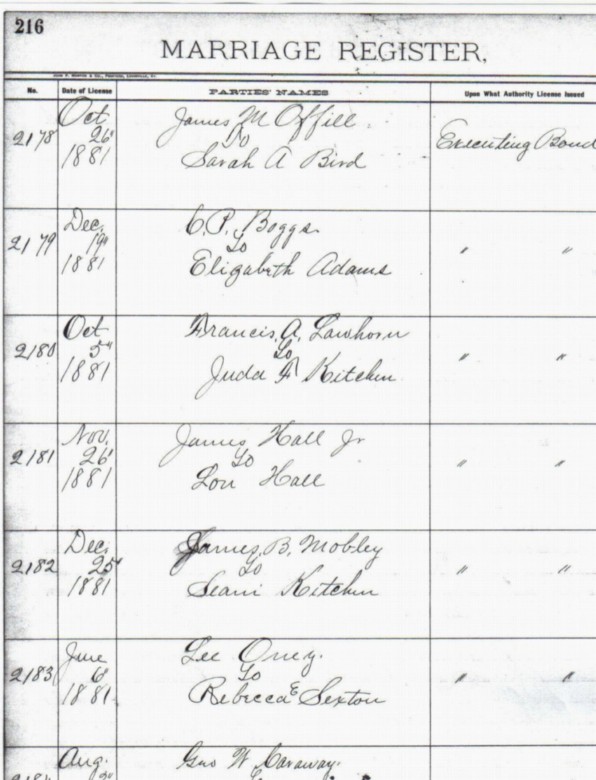 216
MARRIAGE REGISTER,
No. Date of License PARTIES' NAMES Upon What Authority License Issued
2178 Oct 26" 1881 James M Offill To Sarah A Bird Executing Bond
2179 Dec. 19" 1881 C. P. Boggs To Elizabeth Adams " "
2180 Oct 5" 1881 Francis. A. Lawhorn To Juda A Kitchen " "
2181 Nov. 26" 1881 James Hall Jr To Lou Hall " "
2182 Dec. 25" 1881 James, B. Mobley To Kitchen " "
2183 June 6" 1881. Lee Oney. To Rebecca E Sexton " "
Aug. Geo W. Caraway.